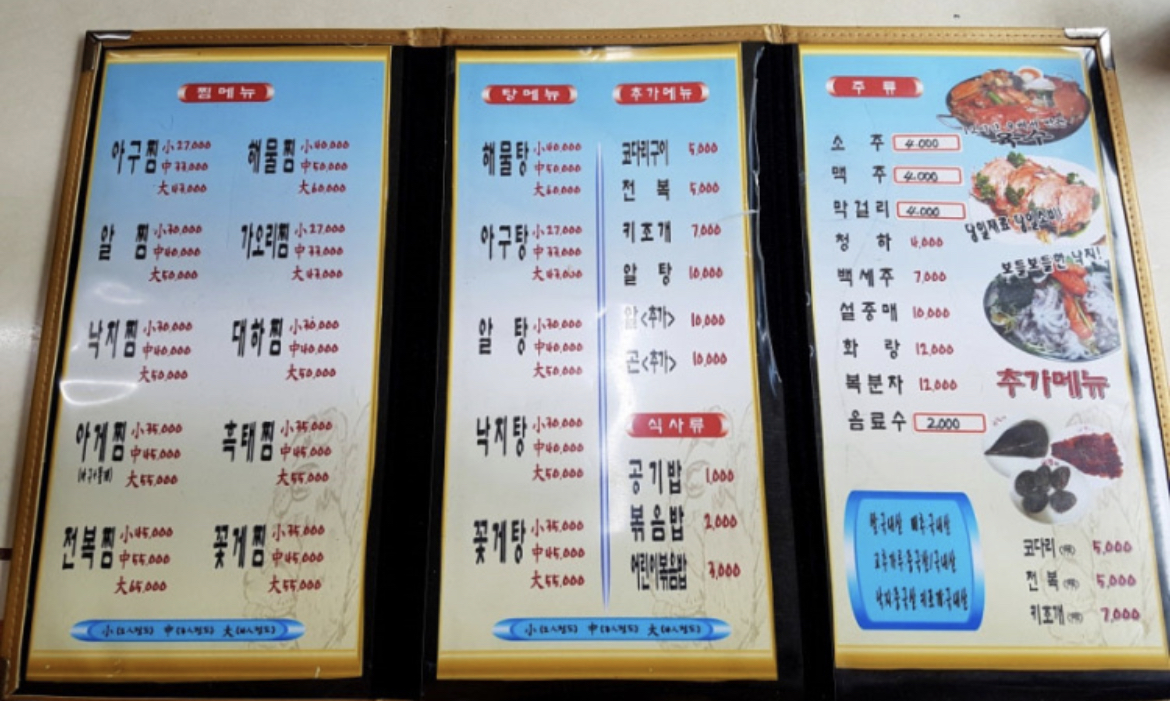 찜메뉴
아구찜 小 27,000
中 33,000
大 43,000
해물찜 小 40,000
中 50,000
大 60,000
알 찜 小 30,000
中 40,000
大 50,000
가오리찜 小 27,000
中 33,000
大 43,000
낙지찜 小 30,000
中 40,000
大 50,000
대하찜 小 30,000
中 40,000
大 50,000
아게찜 小 35,000
中 45,000
大 55,000
흑태찜 小 35,000
中 45,000
大 55,000
전복찜 小 45,000
中 55,000
大 65,000
꽃게찜 小 35,000
中 45,000
大 55,000
小(2人정도) 中(3人정도) 大(4人정도)
탕메뉴
해물탕 小 40,000
中 50,000
大 60,000
아구탕 小 27,000
中 33,000
大 43,000
알 탕 小 30,000
中 40,000
大 50,000
낙지탕 小 30,000
中 40,000
大 50,000
꽃게탕 小 35,000
中 45,000
大 55,000
추가메뉴
코다리구이 5,000
전 복 5,000
키조개 7,000
알 탕 10,000
알<추가> 10,000
곤<추가> 10,000
식사류
공기밥 1,000
볶음밥 2,000
어린이볶음밥 3,000
小(2人정도) 中(3人정도) 大(4人정도)
주 류
소 주 4.000
맥 주 4.000
막걸리 4.000
청 하 4,000
백세주 7,000
설중매 10,000
화 랑 12,000
복분자 12,000
음료수 2.000
당일재료 당일소비!
보들보들한 낙지!
추가메뉴
쌀:국내산 배추:국내산
고추가루:중국산/국내산
낙지:중국산 키조개:국내산
코다리 5,000
전 복 5,000
키조개 7,000